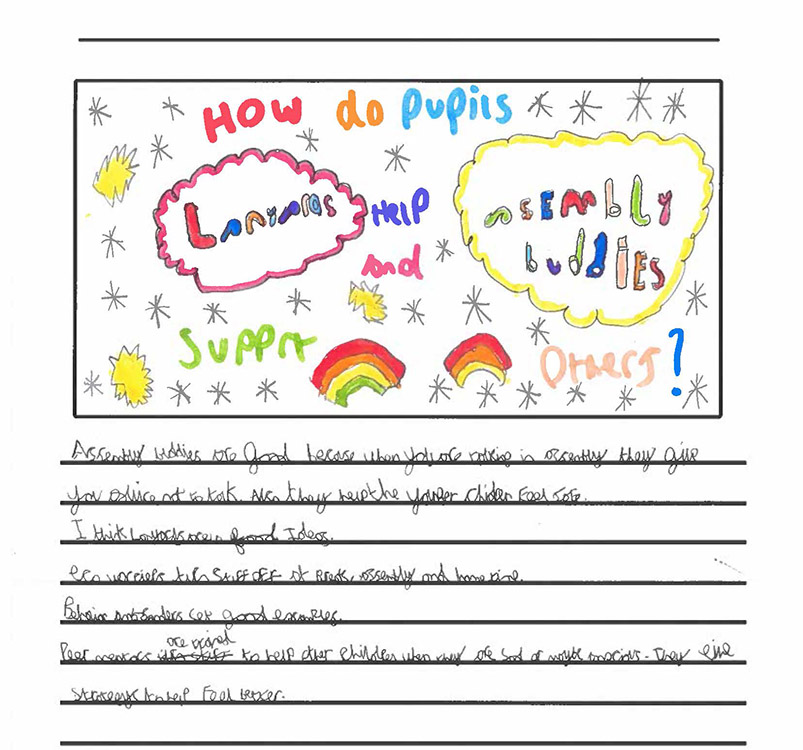 HOW do pupils
Lanyards Help assembly
and buddies
Supprt Others?
Assembly buddies are Good becase when you are talking in assembly they give
you advice not to talk. Also they help the younger childen Feel Safe.
I think Lanyards are a good Ideas.
eco worriers turn stuff OFF at Break, assembly and home time.
Behavior set good examples.
are trained
Peer mentors to help other children when they are Sad or maybe. They give
to help Feel better.